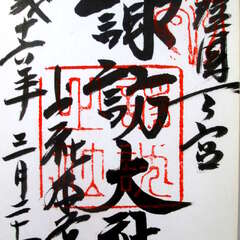 國一之宮
諏訪大社
上社本宮
成十六年三月二十